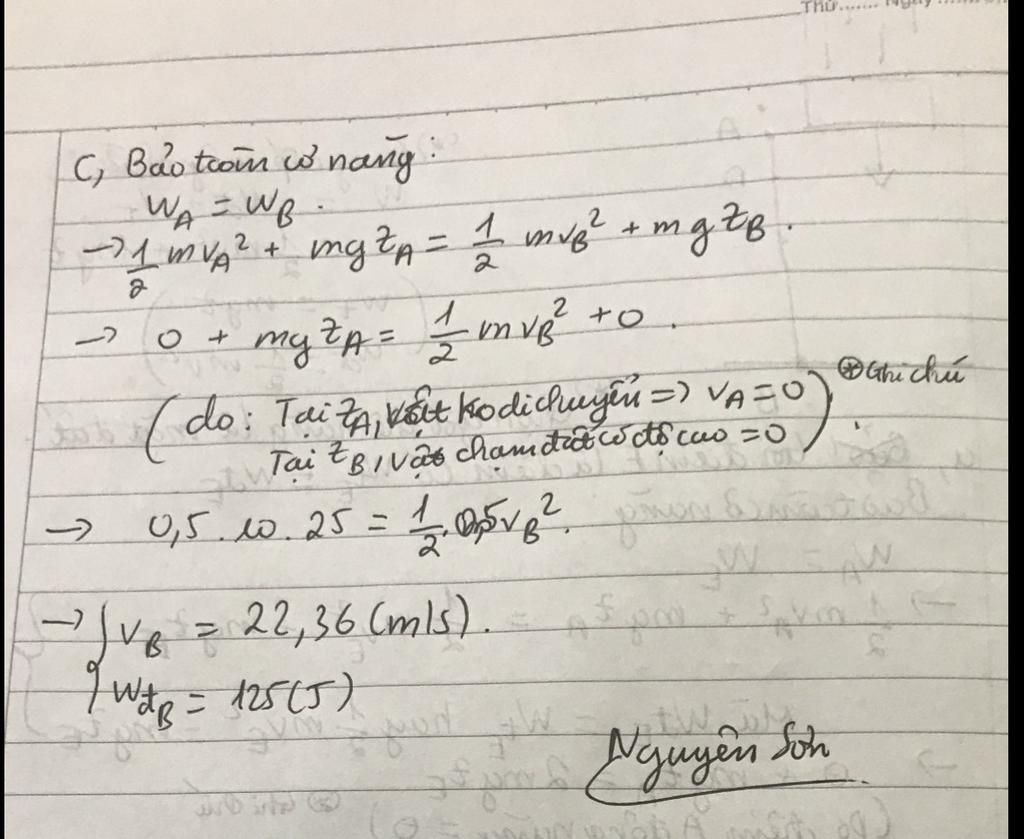 Thứ....... Ngày
C, Bảo toàn cơ năng :
W_A = W_B .
→ 1/2 mv_A² + mgz_A = 1/2 mv_B² + mgz_B .
→ 0 + mgz_A = 1/2 mv_B² + 0 .
(do : Tại z_A, vật ko di chuyển => v_A = 0 ) ⊛ Ghi chú
Tại z_B, vật chạm đất có độ cao = 0 .
→ 0,5 . 10 . 25 = 1/2 . 0,5 v_B² .
→ { v_B = 22,36 (m/s) .
Wđ_B = 125 (J)
Nguyên Sơn